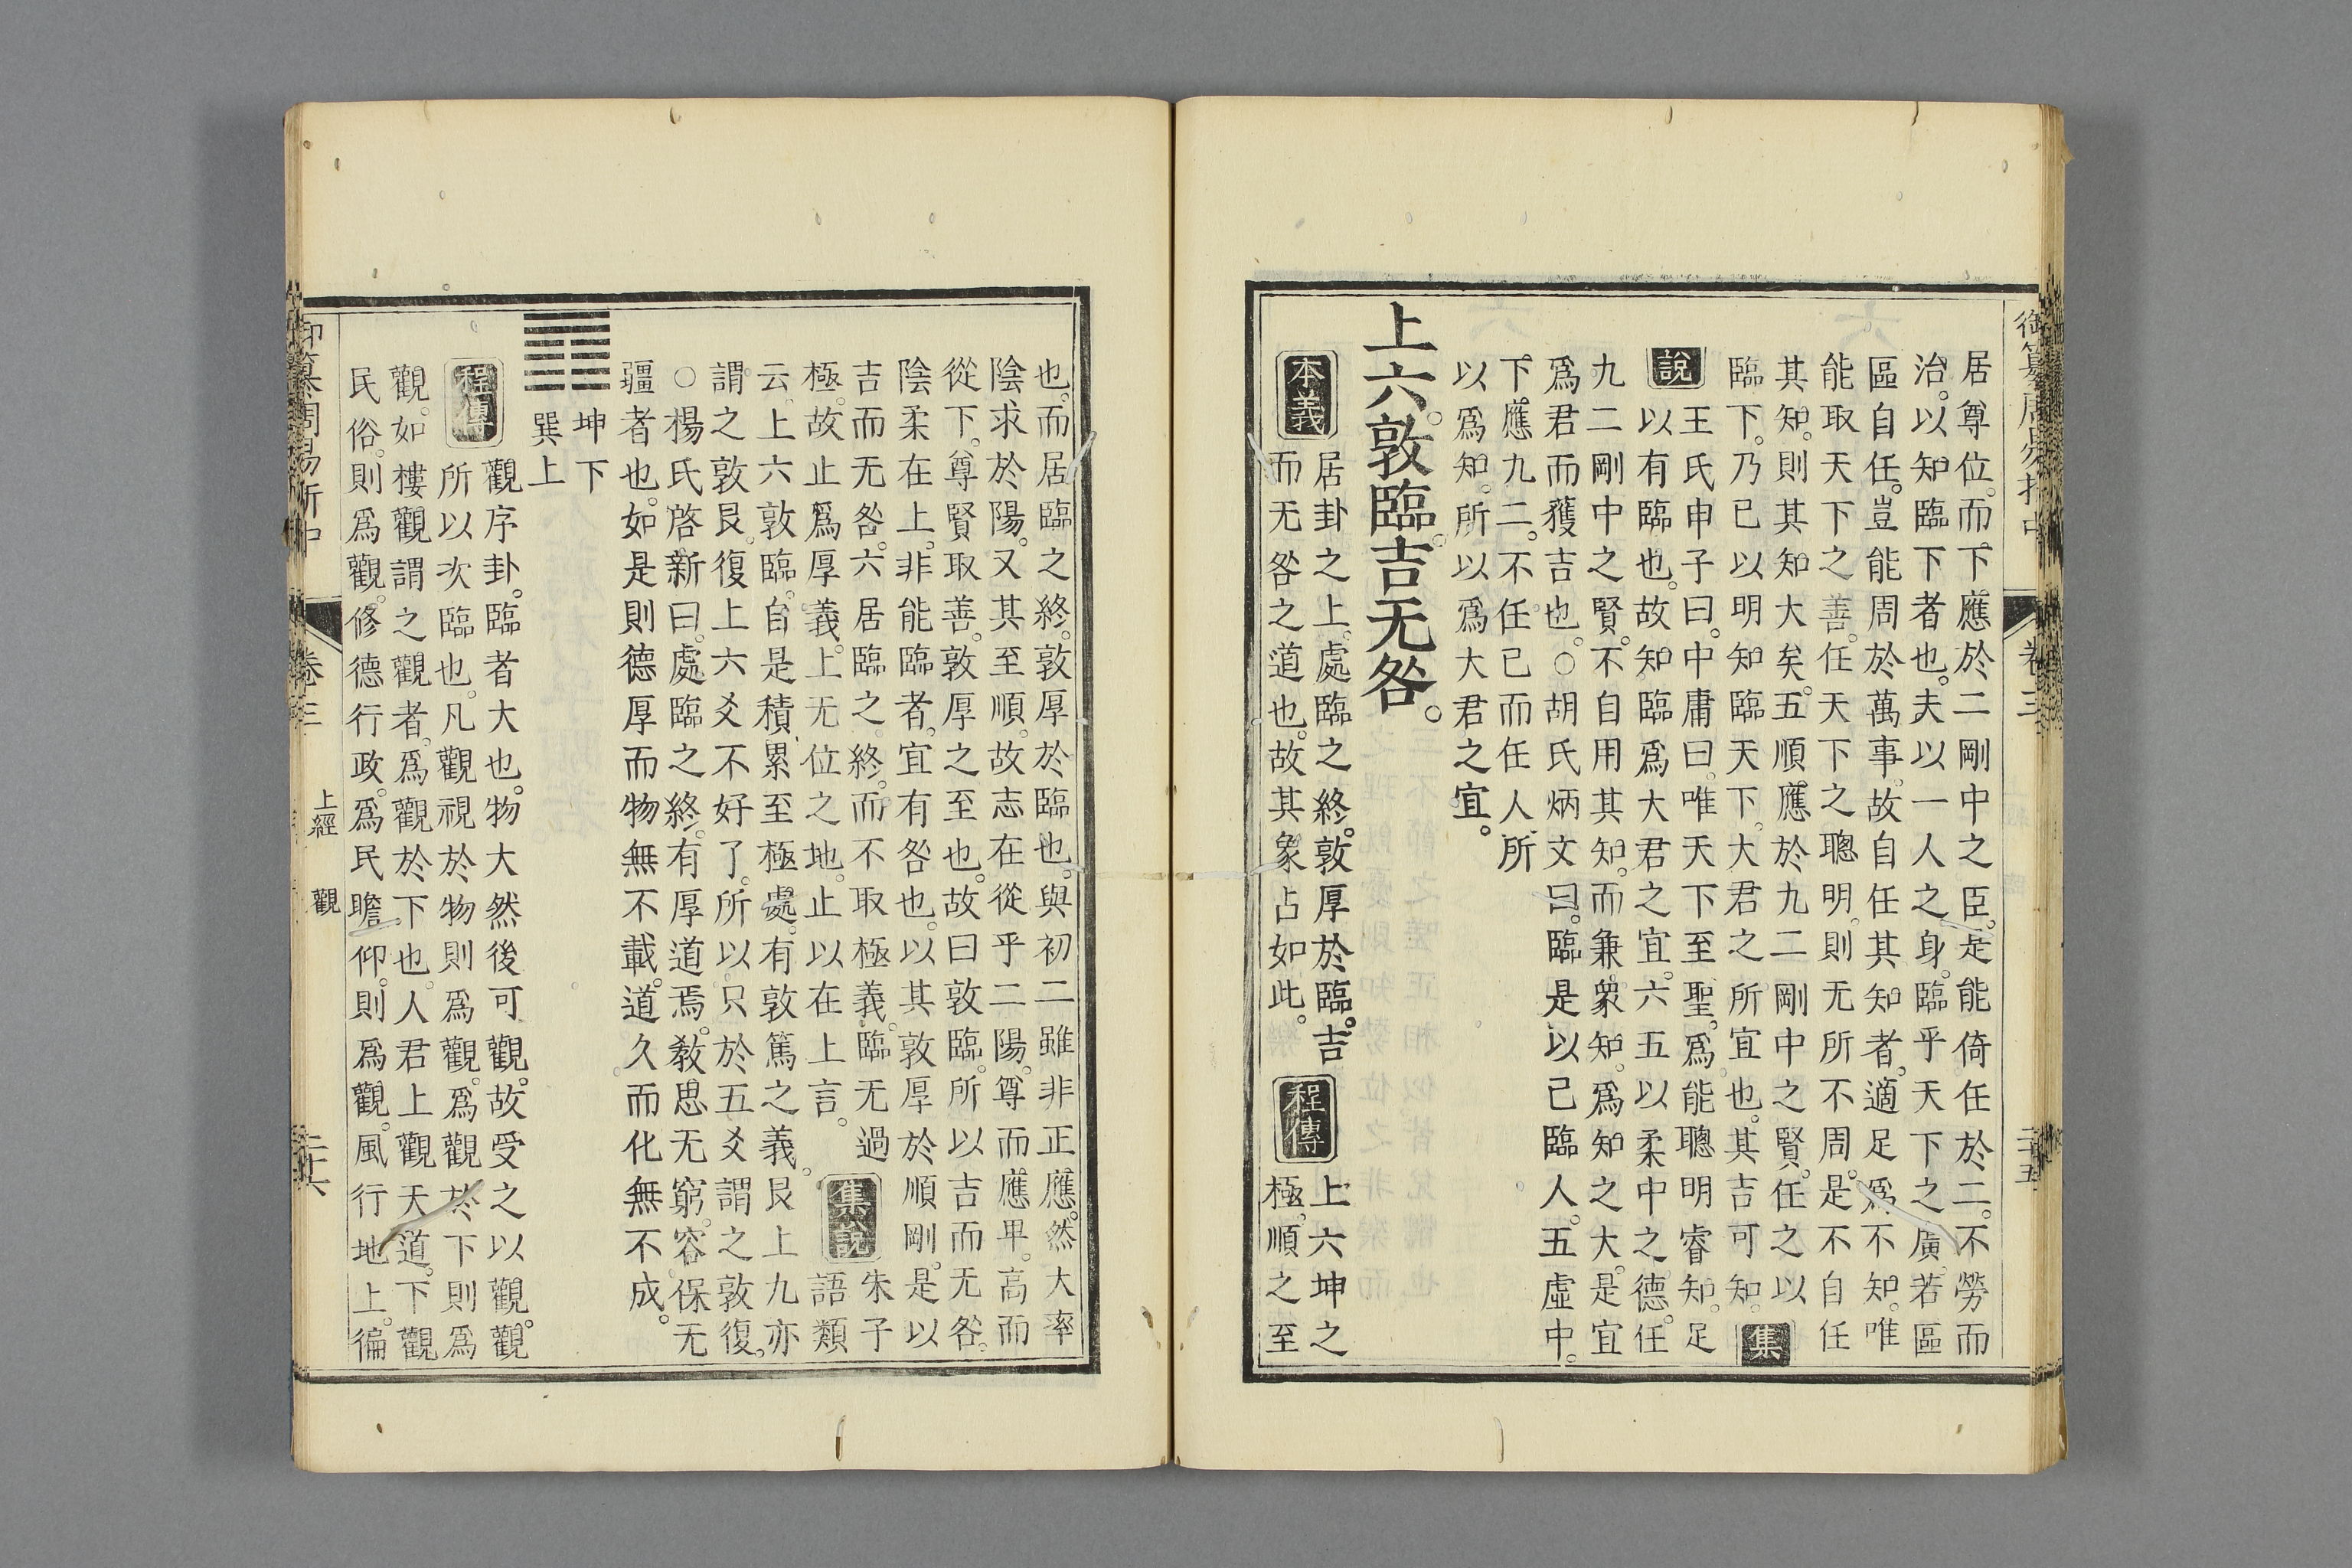 御纂周易折中
卷三
二十五
居尊位。而下應於二剛中之臣。是能倚任於二。不勞而
治。以知臨下者也。夫以一人之身。臨乎天下之廣。若區
區自任。豈能周於萬事。故自任其知者。適足爲不知。唯
能取天下之善。任天下之聰明。則无所不周。是不自任
其知。則其知大矣。五順應於九二剛中之賢。任之以
臨下。乃已以明知臨天下。大君之所宜也。其吉可知。集
說
王氏申子曰。中庸曰。唯天下至聖。爲能聰明睿知。足
以有臨也。故知臨爲大君之宜。六五以柔中之德。任
九二剛中之賢。不自用其知。而兼衆知。爲知之大。是宜
爲君而獲吉也。○胡氏炳文曰。臨是以己臨人。五虛中。
下應九二。不任已而任人。所
以爲知。所以爲大君之宜。
上六。敦臨。吉无咎。
本義
居卦之上。處臨之終。敦厚於臨。吉
而无咎之道也。故其象占如此。
程傳
上六坤之
極。順之至
也。而居臨之終。敦厚於臨也。與初二雖非正應。然大率
陰求於陽。又其至順。故志在從乎二陽。尊而應卑。高而
從下。尊賢取善。敦厚之至也。故曰敦臨。所以吉而无咎。
陰柔在上。非能臨者。宜有咎也。以其敦厚於順剛。是以
吉而无咎。六居臨之終。而不取極義。臨无過
極。故止爲厚義。上无位之地。止以在上言。
集說
朱子
語類
云。上六敦臨。自是積累至極處。有敦篤之義。艮上九亦
謂之敦艮。復上六爻不好了。所以只於五爻謂之敦復。
○楊氏啓新曰。處臨之終。有厚道焉。教思无窮。容保无
疆者也。如是則德厚而物無不載。道久而化無不成。
坤下
巽上
程傳
觀序卦。臨者大也。物大然後可觀。故受之以觀。觀
所以次臨也。凡觀視於物則爲觀。爲觀於下則爲
觀。如樓觀謂之觀者。爲觀於下也。人君上觀天道。下觀
民俗。則爲觀。修德行政。爲民瞻仰。則爲觀。風行地上。徧
御纂周易折中
卷三
上經
觀
二十六